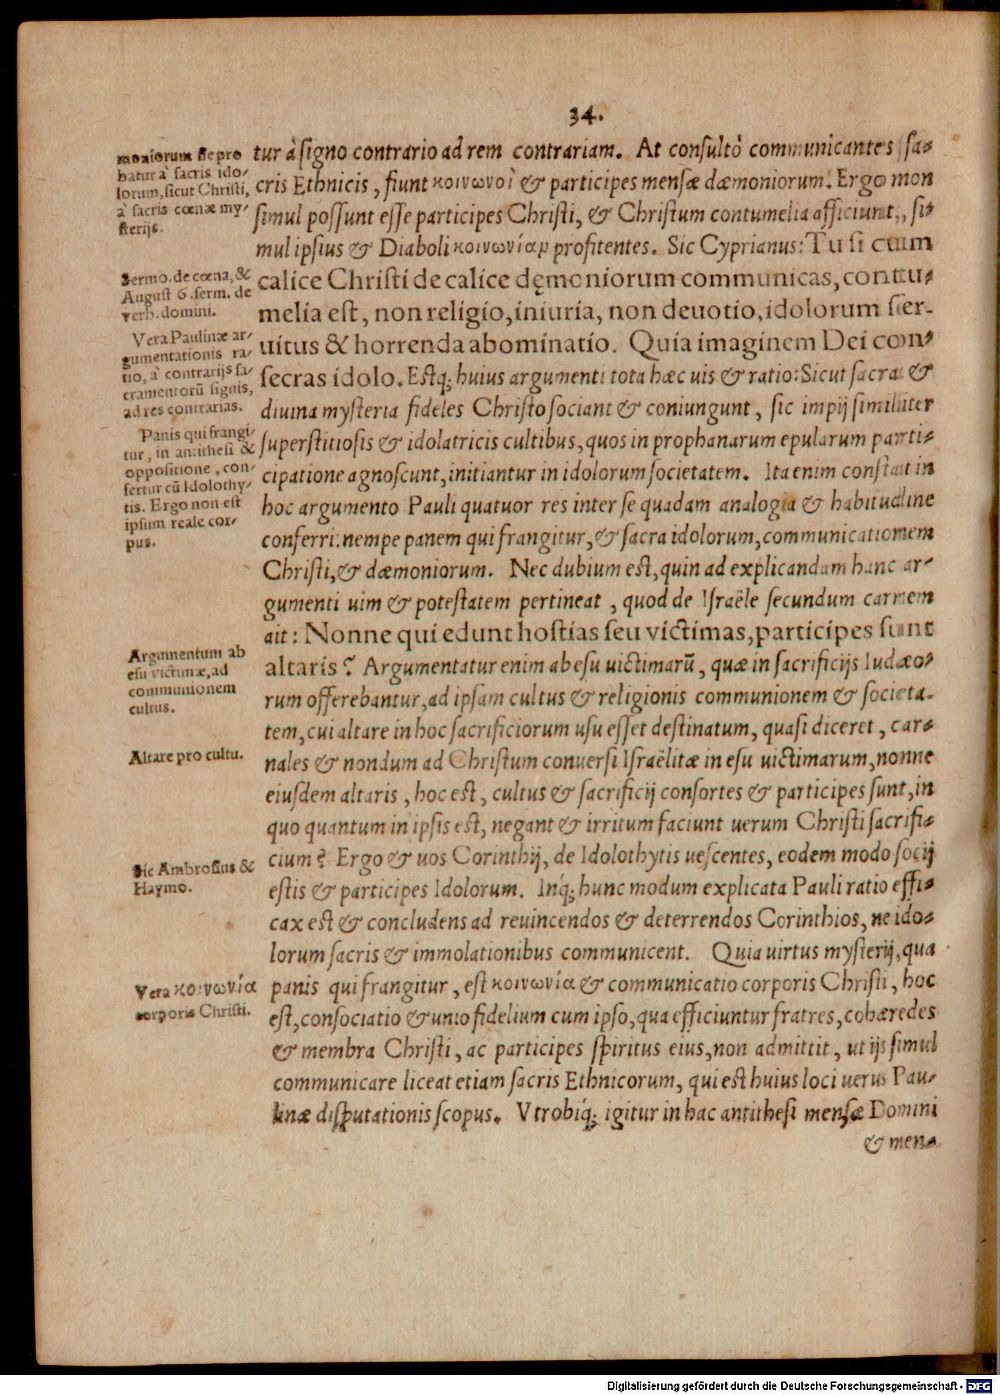 34.
moniorum sic pro
batur à sacris ido/
lorum, sicut Christi,
à sacris cœnæ my/
sterijs.
Sermo. de cœna, &
August 6. serm. de
verb. domini.
Vera Paulinæ ar/
gumentationis ra/
tio, à contrarijs sa/
cramentorū signis,
ad res contrarias.
Panis qui frangi/
tur, in antithesi &
oppositione, con/
fertur cū Idolothy/
tis. Ergo non est
ipsum reale cor/
pus.
Argumentum ab
esu victimæ, ad
communionem
cultus.
Altare pro cultu.
Sic Ambrosius &
Haymo.
Vera κοινωνία
corporis Christi.
tur à signo contrario ad rem contrariam. At consultò communicantes sa-
cris Ethnicis, fiunt κοινωνοὶ & participes mensæ dæmoniorum. Ergo non
simul possunt esse participes Christi, & Christum contumelia afficiunt, si-
mul ipsius & Diaboli κοινωνίαν profitentes. Sic Cyprianus: Tu si cum
calice Christi de calice dęmoniorum communicas, contu-
melia est, non religio, iniuria, non deuotio, idolorum ser-
uitus & horrenda abominatio. Quia imaginem Dei con-
secras idolo. Estq; huius argumenti tota hæc uis & ratio: Sicut sacra &
diuina mysteria fideles Christo sociant & coniungunt, sic impij similiter
superstitiosis & idolatricis cultibus, quos in prophanarum epularum parti-
cipatione agnoscunt, initiantur in idolorum societatem. Ita enim constat in
hoc argumento Pauli quatuor res inter se quadam analogia & habitudine
conferri. nempe panem qui frangitur, & sacra idolorum, communicationem
Christi, & dæmoniorum. Nec dubium est, quin ad explicandam hanc ar-
gumenti uim & potestatem pertineat, quod de Israële secundum carnem
ait: Nonne qui edunt hostias seu victimas, participes sunt
altaris? Argumentatur enim ab esu uictimarū, quæ in sacrificijs Iudæo-
rum offerebantur, ad ipsam cultus & religionis communionem & societa-
tem, cui altare in hoc sacrificiorum usu esset destinatum, quasi diceret, car-
nales & nondum ad Christum conuersi Israëlitæ in esu uictimarum, nonne
eiusdem altaris, hoc est, cultus & sacrificij consortes & participes sunt, in
quo quantum in ipsis est, negant & irritum faciunt uerum Christi sacrifi-
cium? Ergo & uos Corinthij, de Idolothytis uescentes, eodem modo socij
estis & participes Idolorum. Inq́; hunc modum explicata Pauli ratio effi-
cax est & concludens ad reuincendos & deterrendos Corinthios, ne ido-
lorum sacris & immolationibus communicent. Quia uirtus mysterij, qua
panis qui frangitur, est κοινωνία & communicatio corporis Christi, hoc
est, consociatio & unio fidelium cum ipso, qua efficiuntur fratres, cohæredes
& membra Christi, ac participes spiritus eius, non admittit, ut ijs simul
communicare liceat etiam sacris Ethnicorum, qui est huius loci uerus Pau-
linæ disputationis scopus. Vtrobiq́; igitur in hac antithesi mensæ Domini
& men-
Digitalisierung gefördert durch die Deutsche Forschungsgemeinschaft - DFG